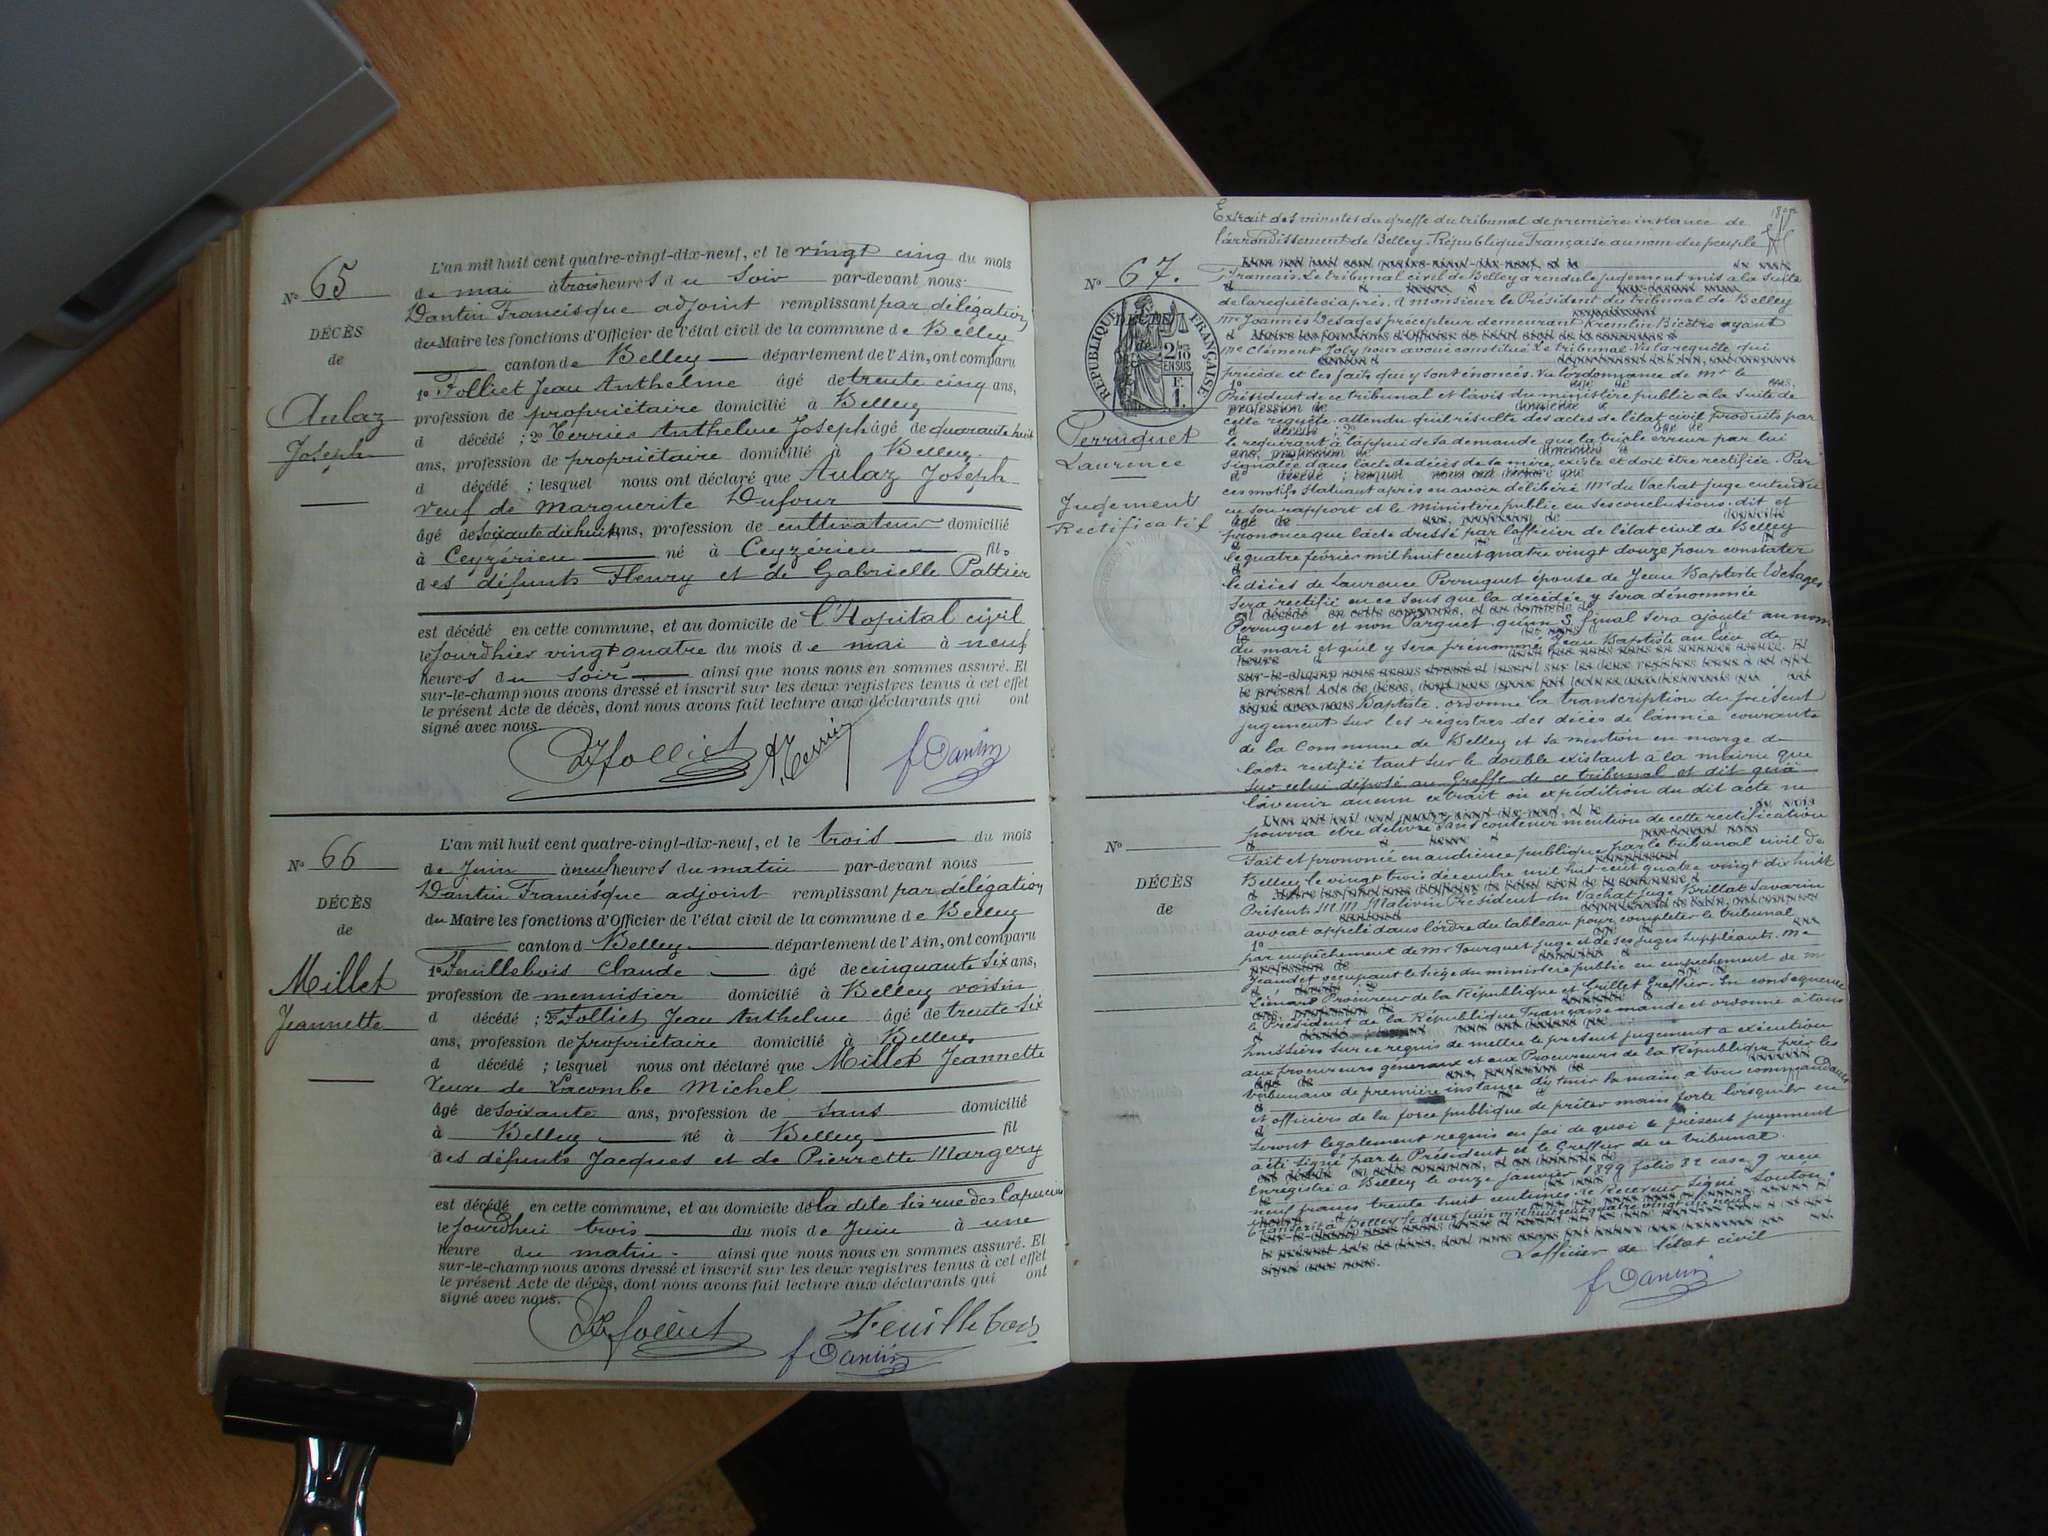 L'an mil huit cent quatre-vingt-dix-neuf, et le vingt cinq du mois
No 65
de mai à trois heures du soir par-devant nous
Dantin Francisque adjoint remplissant par délégation
DÉCÈS
du Maire les fonctions d'Officier de l'état civil de la commune de Belley
de
canton de Belley département de l'Ain, ont comparu
1o Folliet Jean Anthelme âgé de trente cinq ans,
Aulaz
profession de propriétaire domicilié à Belley
Joseph
d décédé ; 2o Terrier Anthelme Joseph âgé de quarante huit
ans, profession de propriétaire domicilié à Belley
d décédé ; lesquel nous ont déclaré que Aulaz Joseph
veuf de Marguerite Dufour
âgé de soixante dix huit ans, profession de cultivateur domicilié
à Ceyzérieu né à Ceyzérieu fils
des défunts Fleury et de Gabrielle Pattier
est décédé en cette commune, et au domicile de l'Hopital civil
le jourdhier vingt quatre du mois de mai à neuf
heures du soir ainsi que nous nous en sommes assuré. Et
sur-le-champ nous avons dressé et inscrit sur les deux registres tenus à cet effet
le présent Acte de décès, dont nous avons fait lecture aux déclarants qui ont
signé avec nous.
Folliet Terrier f Dantin
L'an mil huit cent quatre-vingt-dix-neuf, et le trois du mois
No 66
de Juin à neuf heures du matin par-devant nous
Dantin Francisque adjoint remplissant par délégation
DÉCÈS
du Maire les fonctions d'Officier de l'état civil de la commune de Belley
de
canton d Belley département de l'Ain, ont comparu
1o Feuillebois Claude âgé de cinquante six ans,
Millet
profession de menuisier domicilié à Belley voisin
Jeannette
d décédé ; 2o Folliet Jean Anthelme âgé de trente six
ans, profession de propriétaire domicilié à Belley
d décédé ; lesquel nous ont déclaré que Millet Jeannette
veuve de Lacombe Michel
âgé de soixante ans, profession de sans domicilié
à Belley né à Belley fil
des défunts Jacques et de Pierrette Margery
est décédé en cette commune, et au domicile de la dite sis rue des Capucins
le jourdhui trois du mois de Juin à une
heure du matin ainsi que nous nous en sommes assuré. Et
sur-le-champ nous avons dressé et inscrit sur les deux registres tenus à cet effet
le présent Acte de décès, dont nous avons fait lecture aux déclarants qui ont
signé avec nous.
Folliet Feuillebois
f Dantin
Extrait des minutes du greffe du tribunal de première instance de
l'arrondissement de Belley. République Française au nom du peuple
No 67.
Français. Le tribunal civil de Belley a rendu le jugement mis à la suite
de la requête ci après. A monsieur le Président du tribunal de Belley
RÉPUBLIQUE FRANÇAISE
DÉCÈS
de
2/10 EN SUS
F. 1.
Mr Joannès Desages précepteur demeurant Kremlin Bicêtre ayant
Me Clément Joly pour avoué constitué. Le tribunal. Vu la requête qui
précède et les faits qui y sont énoncés. Vu l'ordonnance de Mr le
Président de ce tribunal et l'avis du ministère public à la suite de
cette requête. attendu qu'il résulte des actes de l'état civil produits par
Perruquet
Laurence
le requérant à l'appui de sa demande que la triple erreur par lui
signalée dans l'acte de décès de sa mère existe et doit être rectifiée. Par
Jugement
Rectificatif
ces motifs statuant après en avoir délibéré Mr du Vachat juge entendu
en son rapport et le Ministère public en ses conclusions ; dit et
prononce que l'acte dressé par l'officier de l'état civil de Belley
le quatre février mil huit cent quatre vingt douze pour constater
le décès de Laurence Perruquet épouse de Jean Baptiste Desages
sera rectifié en ce sens que la décédée y sera dénommée
Perruquet et non Parquet. qu'un S final sera ajouté au nom
du mari et qu'il y sera prénommé Jean Baptiste au lieu de
Baptiste. ordonne la transcription du présent
jugement sur les régistres des décès de l'année courante
de la Commune de Belley et sa mention en marge de
l'acte rectifié tant sur le double existant à la mairie que
sur celui déposé au Greffe de ce tribunal et dit qu'à
l'avenir aucun extrait ou expédition du dit acte ne
pourra etre délivré sans contenir mention de cette rectification
No
DÉCÈS
de
Fait et prononcé en audience publique par le tribunal civil de
Belley le vingt trois décembre mil huit cent quatre vingt dix huit
Présents M.M. Malivin Président du Vachat juge Brillat Savarin
avocat appelé dans l'ordre du tableau pour compléter le tribunal
par empêchement de Mr Fourquet juge et de ses juges suppléants. Me
Jeandet occupant le siège du ministère public en empêchement de m
Procureur de la République et Grillet Greffier. En conséquence
le Président de la République Française mande et ordonne à tous
huissiers sur ce requis de mettre le présent jugement à exécution
aux procureurs généraux et aux Procureurs de la République près les
tribunaux de première instance d'y tenir la main à tous commandants
et officiers de la force publique de prêter main forte lorsqu'ils en
seront légalement requis en foi de quoi le présent jugement
a été signé par le Président et le Greffier de ce tribunal.
Enregistré à Belley le onze janvier 1899 folio 82 case 9 reçu
neuf francs trente huit centimes. le Receveur signé Souton
Transcrit à Belley le deux juin mil huit cent quatre vingt dix neuf
L'officier de l'état civil
f Dantin